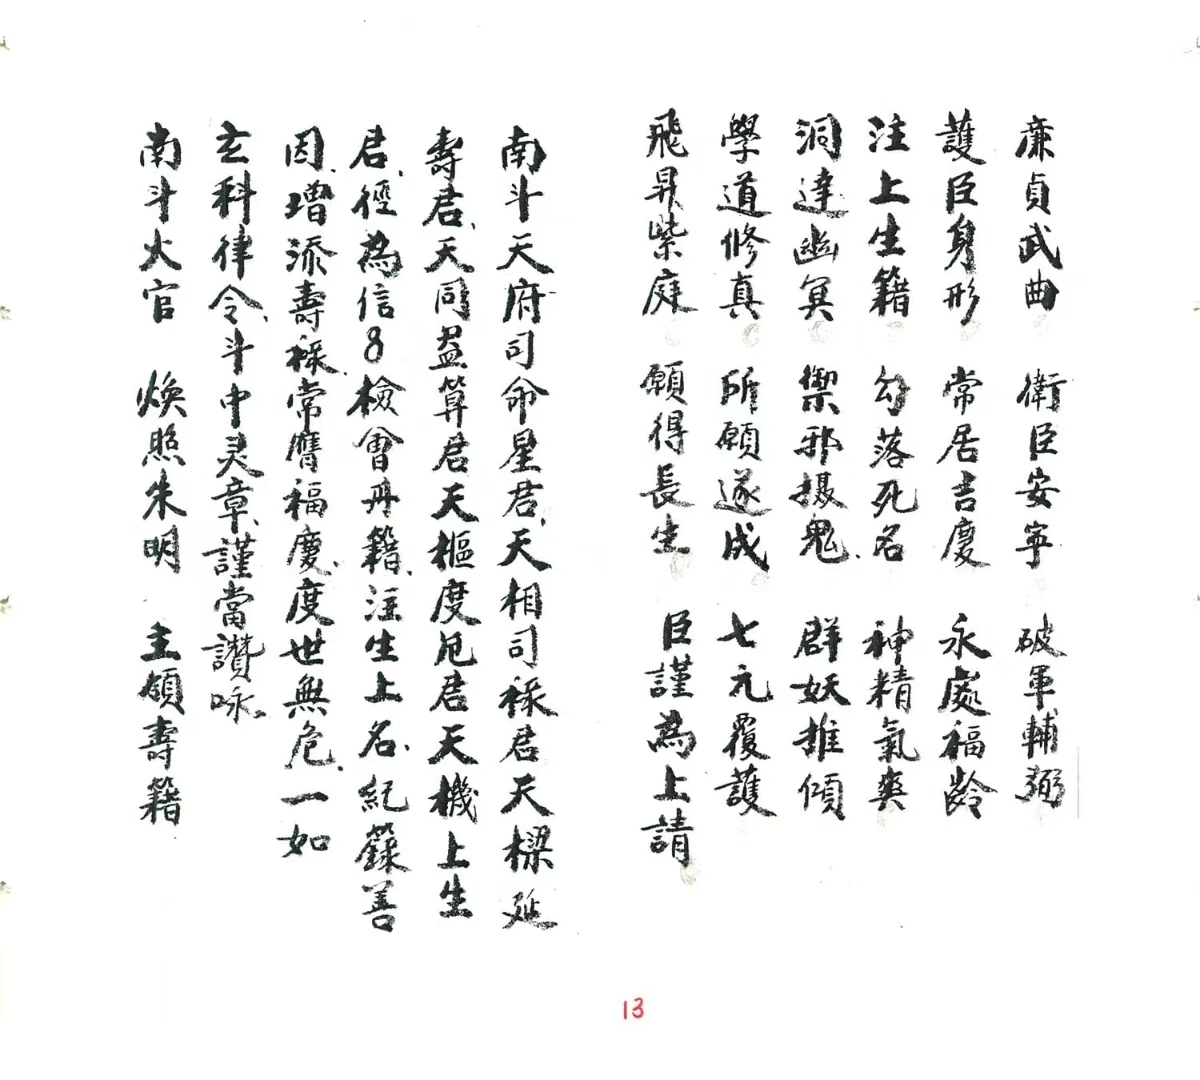 廉貞武曲 衛臣安寧 破軍輔弼
護臣身形 常居吉慶 永處福齡
注上生籍 勾落死名 神精氣爽
洞達幽冥 禦邪摄鬼 群妖摧傾
學道修真 所願遂成 七元覆護
飛昇紫庭 願得長生 臣謹為上請
南斗天府司命星君、天相司祿君天樑延
壽君、天同益算君天樞度厄君天機上生
君、徑為信 檢會丹籍、注生上名、紀籙善
因、增添壽祿、常膺福慶、度世無危、一如
玄科律令、斗中灵章、謹當讚咏、
南斗火官 煥照朱明 主領壽籍
13